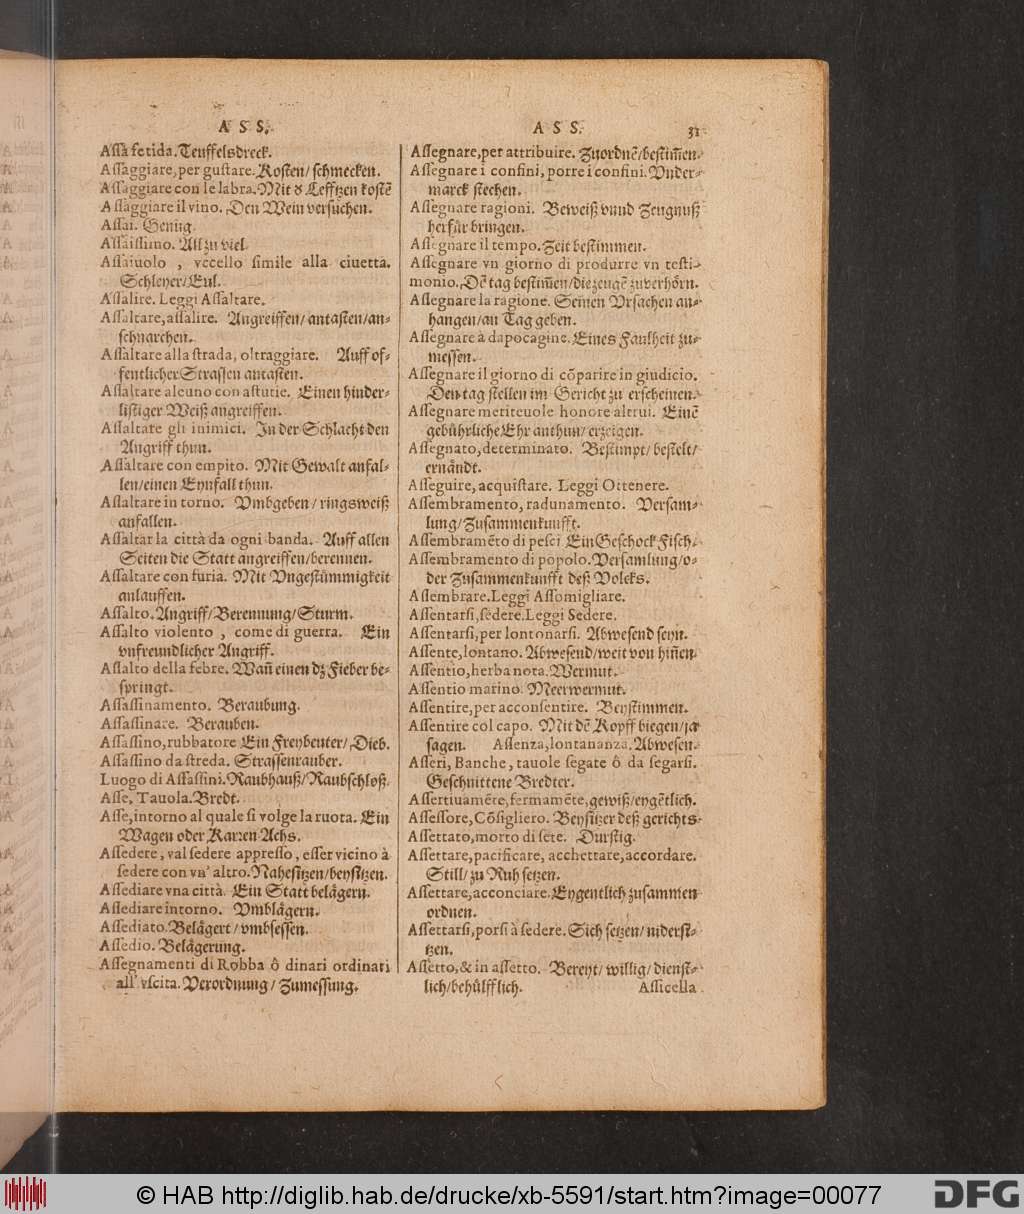 A S S.
Aſſa fetida. Teuffelsdreck.
Aſſaggiare, per guſtare. Koſten/ ſchmecken.
Aſſaggiare con le labra. Mit d' Lefftzen koſtẽ
Aſſaggiare il vino. Den Wein verſuchen.
Aſſai. Genug.
Aſſaiſſimo. All zu viel.
Aſſaiuolo, vccello ſimile alla ciuetta.
Schleyer/ Eul.
Aſſalire. Leggi Aſſaltare.
Aſſaltare, aſſalire. Angreiffen/ antaſten/ an-
ſchnarchen.
Aſſaltare alla ſtrada, oltraggiare. Auff of-
fentlicher Straſſen antaſten.
Aſſaltare alcuno con aſtutie. Einen hinder-
liſtiger Weiß angreiffen.
Aſſaltare gli inimici. In der Schlacht den
Angriff thun.
Aſſaltare con empito. Mit Gewalt anfal-
len/ einen Eynfall thun.
Aſſaltare in torno. Vmbgeben/ ringsweiß
anfallen.
Aſſaltar la città da ogni banda. Auff allen
Seiten die Statt angreiffen/ berennen.
Aſſaltare con furia. Mit Vngeſtuͤmmigkeit
anlauffen.
Aſſalto. Angriff/ Berennung/ Sturm.
Aſſalto violento, come di guerra. Ein
vnfreundlicher Angriff.
Aſſalto della febre. Wañ einen dz Fieber be-
ſpringt.
Aſſaſſinamento. Beraubung.
Aſſaſſinare. Berauben.
Aſſaſſino, rubbatore Ein Freybeuter/ Dieb.
Aſſaſſino da ſtreda. Straſſenrauber.
Luogo di Aſſaſſini. Raubhauß/ Raubſchloß.
Aſſe, Tauola. Bredt.
Aſſe, intorno al quale ſi volge la ruota. Ein
Wagen oder Karren Achs.
Aſſedere, val ſedere appreſſo, eſſer vicino à
ſedere con vn' altro. Naheſitzen/ beyſitzen.
Aſſediare vna città. Ein Statt belaͤgern.
Aſſediare intorno. Vmblaͤgern.
Aſſediato. Belaͤgert/ vmbſeſſen.
Aſſedio. Belaͤgerung.
Aſſegnamenti di Robba ô dinari ordinati
all' vſcita. Verordnung/ Zumeſſung.
A S S. 31
Aſſegnare, per attribuire. Zuordnẽ/ beſtim̃en.
Aſſegnare i confini, porre i confini. Vnder-
marck ſtechen.
Aſſegnare ragioni. Beweiß vnnd Zeugnuß
herfuͤr bringen.
Aſſegnare il tempo. Zeit beſtimmen.
Aſſegnare vn giorno di produrre vn teſti-
monio. Dẽ tag beſtim̃en/ die zeugẽ zuverhoͤrn.
Aſſegnare la ragione. Seinen Vrſachen an-
hangen/ an Tag geben.
Aſſegnare à dapocagine. Eines Faulheit zu-
meſſen.
Aſſegnare il giorno di cõparire in giudicio.
Den tag ſtellen im Gericht zu erſcheinen.
Aſſegnare meriteuole honore altrui. Einẽ
gebuͤhrliche Ehr anthun/ erzeigen.
Aſſegnato, determinato. Beſtimpt/ beſtelt/
ernaͤndt.
Aſſeguire, acquiſtare. Leggi Ottenere.
Aſſembramento, radunamento. Verſam-
lung/ Zuſammenkunfft.
Aſſembramẽto di peſci Ein Geſchock Fiſch.
Aſſembramento di popolo. Verſamlung/ o-
der Zuſammenkunfft deß Volcks.
Aſſembrare. Leggi Aſſomigliare.
Aſſentarſi, ſedere. Leggi Sedere.
Aſſentarſi, per lontonarſi. Abweſend ſeyn.
Aſſente, lontano. Abweſend/ weit von hiñen.
Aſſentio, herba nota. Wermut.
Aſſentio marino. Meerwermut.
Aſſentire, per acconſentire. Beyſtimmen.
Aſſentire col capo. Mit dẽ Kopff biegen/ ja
ſagen. Aſſenza, lontananza. Abweſen.
Aſſeri, Banche, tauole ſegate ô da ſegarſi.
Geſchnittene Bredter.
Aſſertiuamẽte, fermamẽte, gewiß/ eygẽtlich.
Aſſeſſore, Cõſigliero. Beyſitzer deß gerichts
Aſſettato, morto di ſete. Durſtig.
Aſſettare, pacificare, acchettare, accordare.
Still/ zu Ruh ſetzen.
Aſſettare, acconciare. Eygentlich zuſammen
ordnen.
Aſſettarſi, porſi à ſedere. Sich ſetzen/ niderſi-
tzen.
Aſſetto, & in aſſetto. Bereyt/ willig/ dienſt-
lich/ behuͤlfflich. Aſſicella
© HAB http://diglib.hab.de/drucke/xb-5591/start.htm?image=00077
DFG